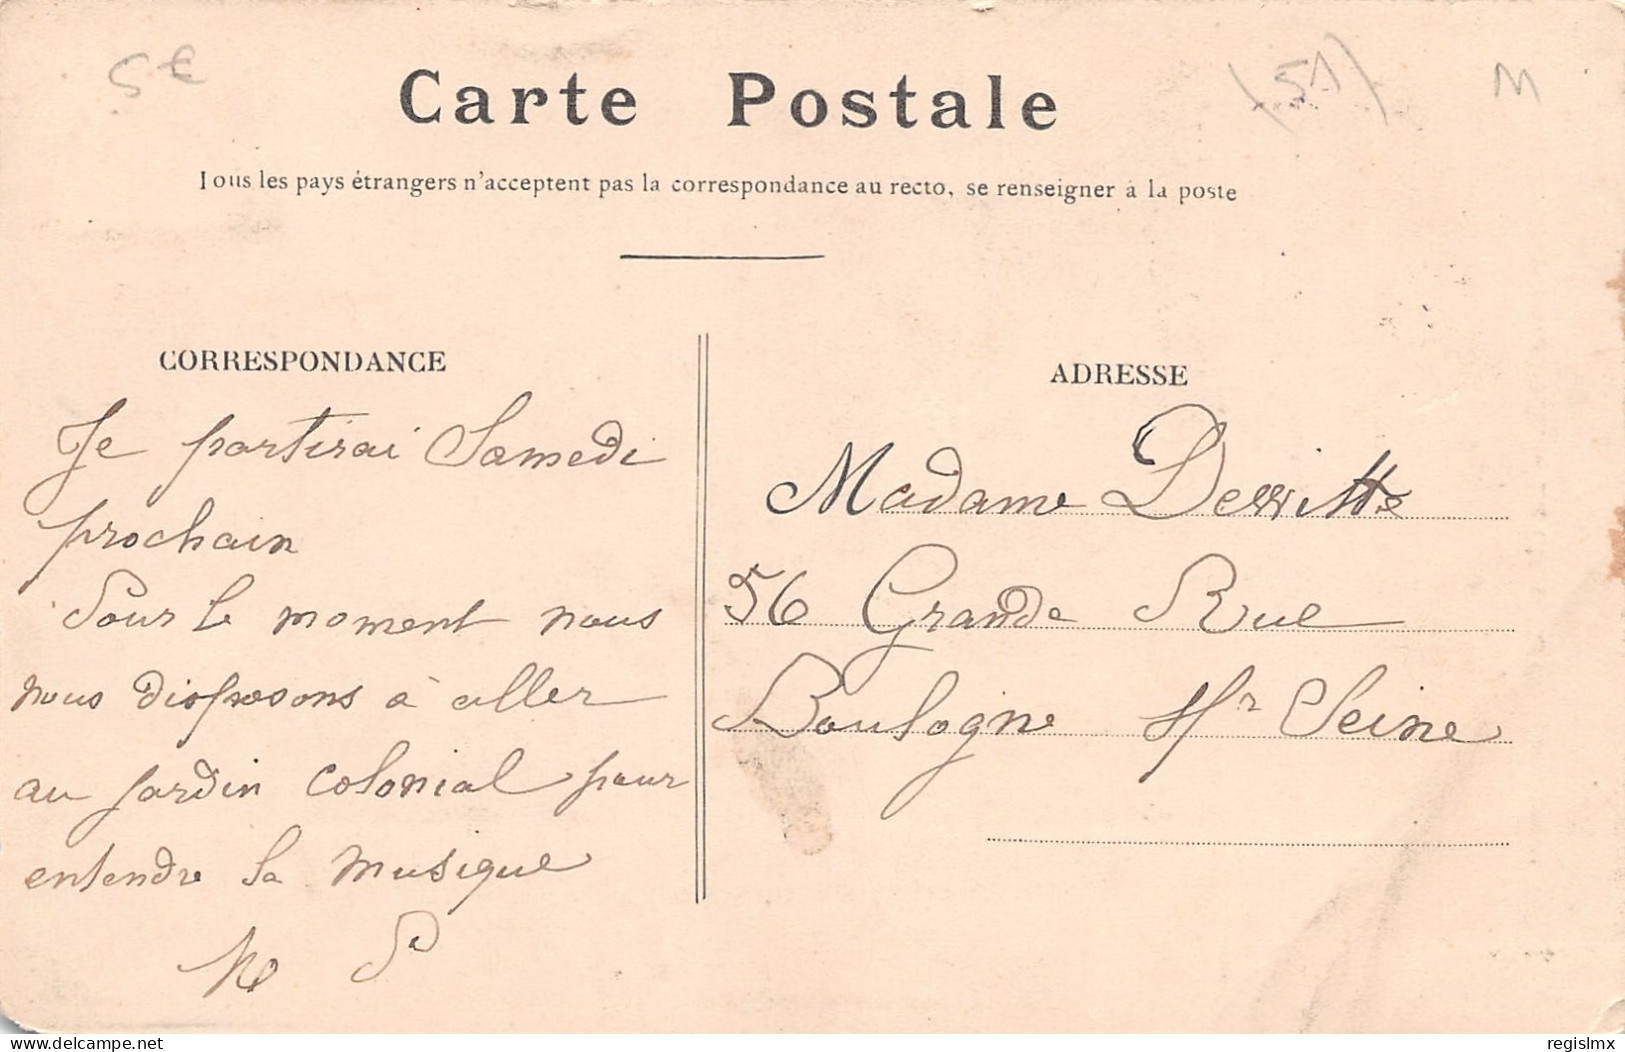 5€
(51)
M
Carte Postale
Tous les pays étrangers n'acceptent pas la correspondance au recto, se renseigner à la poste
CORRESPONDANCE
Je partirai Samedi
prochain
Pour le moment nous
nous disposons à aller
au jardin colonial pour
entendre la musique
ADRESSE
Madame
56 Grande Rue
Boulogne s/r Seine
www.delcampe.net
regislmx